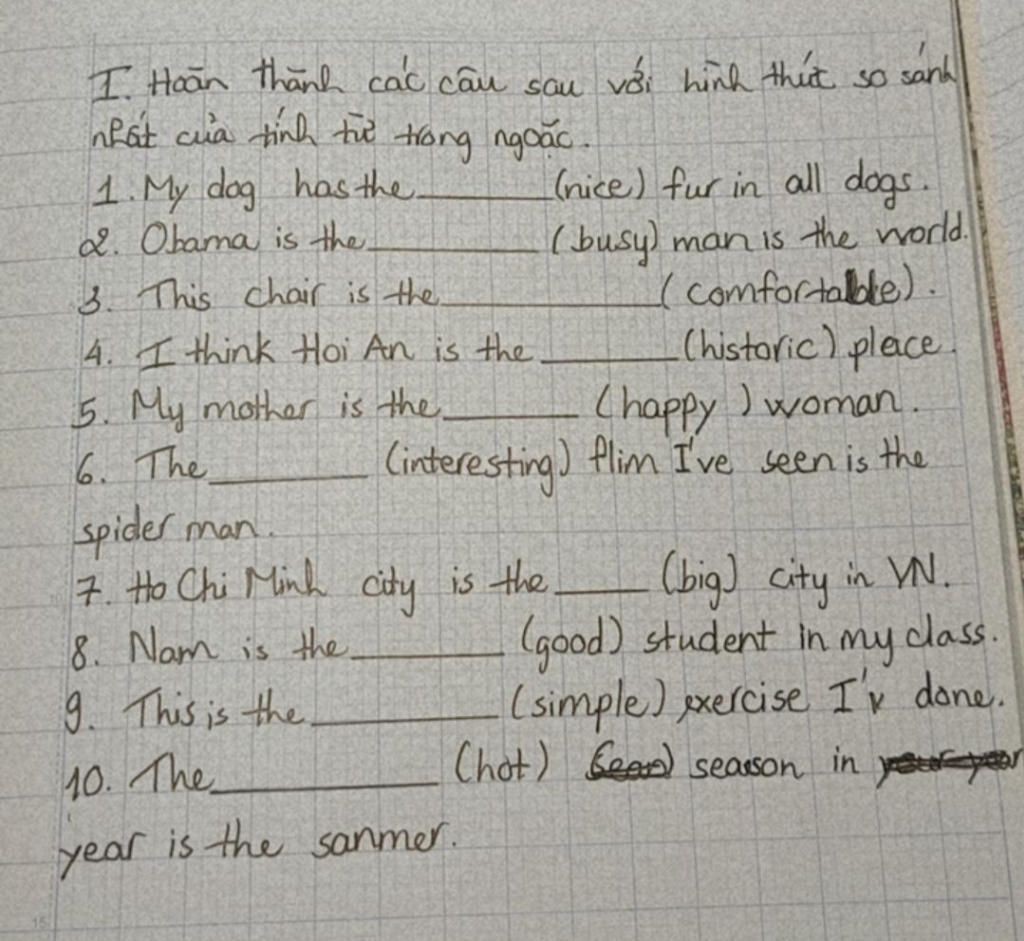 I. Hoàn thành các câu sau với hình thức so sánh
nhất của tính từ trong ngoặc.
1. My dog has the ________ (nice) fur in all dogs.
2. Obama is the ________ (busy) man is the world.
3. This chair is the ________ (comfortable).
4. I think Hoi An is the ________ (historic) place.
5. My mother is the ________ (happy) woman.
6. The ________ (interesting) flim I've seen is the
spider man.
7. Ho Chi Minh city is the ____ (big) city in VN.
8. Nam is the ________ (good) student in my class.
9. This is the ________ (simple) exercise I'v done.
10. The ________ (hot) season in
year is the sanmer.
15